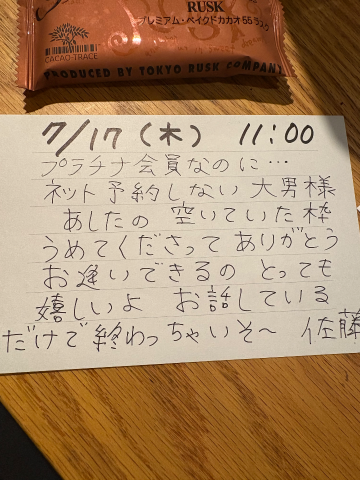 RUSK
プレミアム・ベイクドカカオ66ラスク
CACAO-TRACE
PRODUCED BY TOKYO RUSK COMPANY
7/17(木) 11:00
プラチナ会員なのに…
ネット予約しない大男様
あしたの 空いていた枠
うめてくださって ありがとう
お逢いできるの とっても
嬉しいよ お話している
だけで終わっちゃいそ〜 佐藤